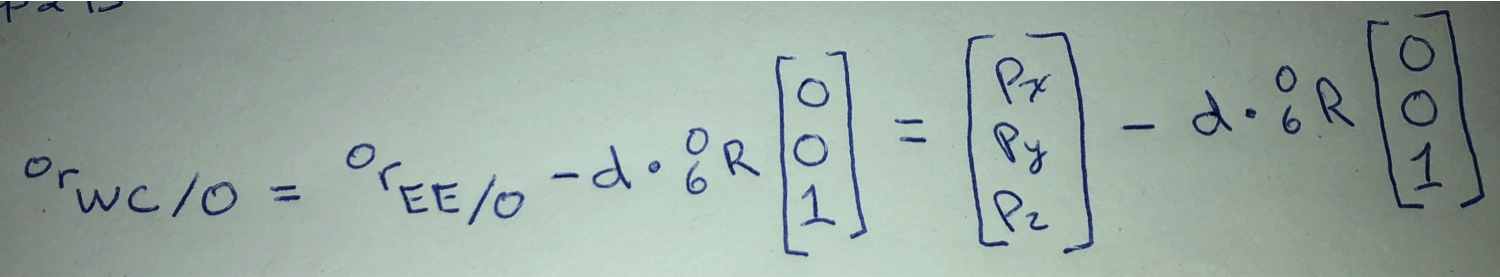 ⁰r_WC/O = ⁰r_EE/O - d · ⁰₆R [0 0 1] = [Px Py Pz] - d · ⁰₆R [0 0 1]